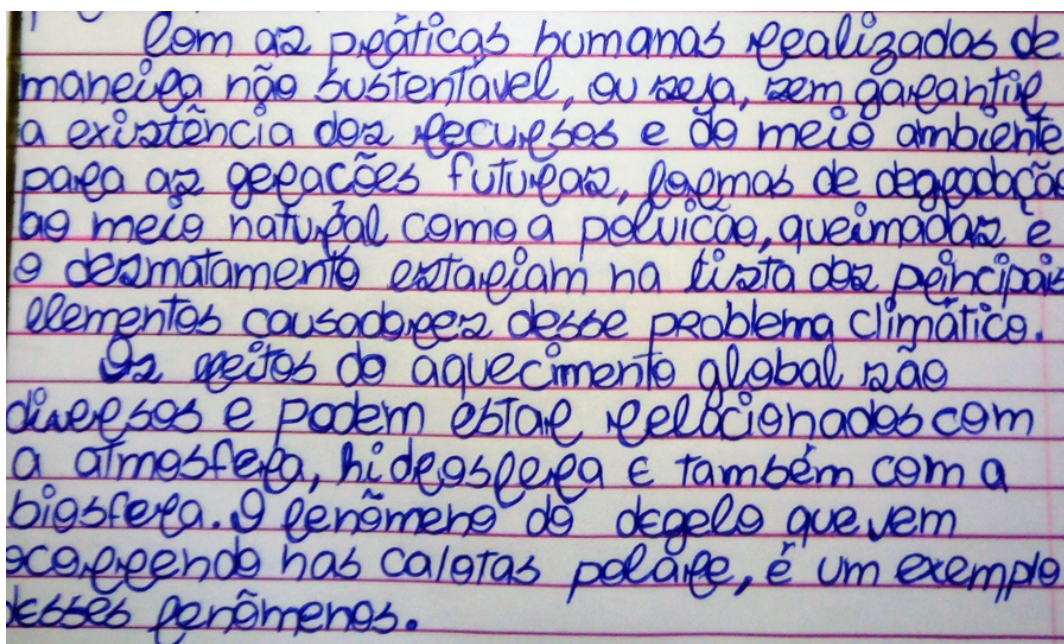 Com as práticas humanas realizadas de
maneira não sustentável, ou seja, sem garantir
a existência dos recursos e do meio ambiente
para as gerações futuras, formas de degradação
ao meio natural como a poluição, queimadas e
o desmatamento estariam na lista dos principais
elementos causadores desse problema climático.
Os efeitos do aquecimento global são
diversos e podem estar relacionados com
a atmosfera, hidrosfera e também com a
biosfera. O fenômeno do degelo que vem
ocorrendo nas calotas polare, é um exemplo
desses fenômenos.